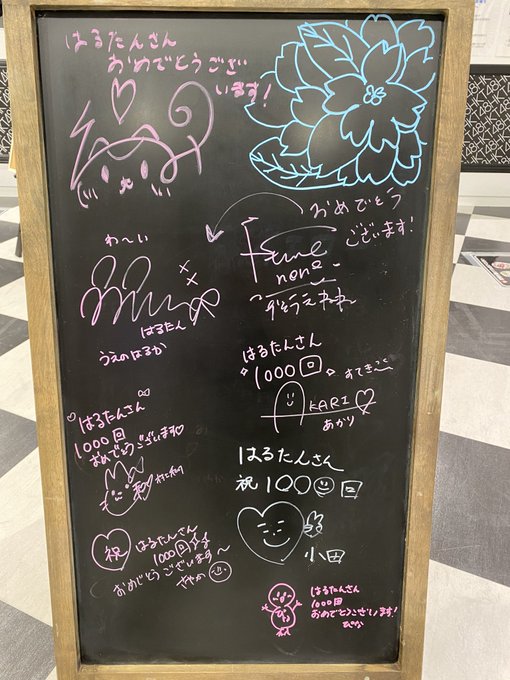 はるたんさん
おめでとうござい
います!
おめでとう
ございます!
わーい
none
はるたん
うえのはるか
はるたんさん
1000回
すてき
AKARI
あかり
はるたんさん
1000回
おめでとうございます
はるたんさん
祝1000回
小田
祝
はるたんさん
1000回
おめでとうございます〜
さやか
はるたんさん
1000回
おめでとうございます!
ぴな